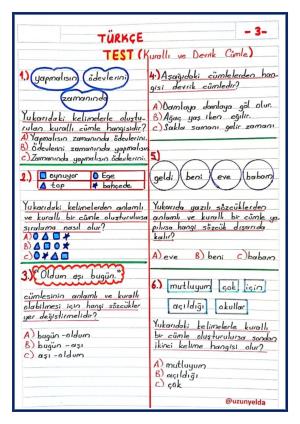 TÜRKÇE
- 3 -
TEST (Kurallı ve Devrik Cümle)
1.) yapmalısın ödevlerini
zamanında
Yukarıdaki kelimelerle oluştu-
rulan kurallı cümle hangisidir?
A) Yapmalısın zamanında ödevlerini.
B) Ödevlerini zamanında yapmalısın.
C) Zamanında yapmalısın ödevlerini.
2.) oynuyor Ege
top bahçede
Yukarıdaki kelimelerden anlamlı
ve kurallı bir cümle oluşturulursa
sıralama nasıl olur?
A)
B)
C)
3.) "Oldum aşı bugün."
cümlesinin anlamlı ve kurallı
olabilmesi için hangi sözcükler
yer değiştirmelidir?
A) bugün - oldum
B) bugün - aşı
C) aşı - oldum
4.) Aşağıdaki cümlelerden han-
gisi devrik cümledir?
A) Damlaya damlaya göl olur.
B) Ağaç yaş iken eğilir.
C) Sakla samanı gelir zamanı.
5.)
geldi beni eve babam
Yukarıda yazılı sözcüklerden
anlamlı ve kurallı bir cümle ya-
pılırsa hangi sözcük dışarıda
kalır?
A) eve B) beni C) babam
6.) mutluyum çok için
açıldığı okullar
Yukarıdaki kelimelerle kurallı
bir cümle oluşturulursa sondan
ikinci kelime hangisi olur?
A) mutluyum
B) açıldığı
C) çok
@uzunyelda